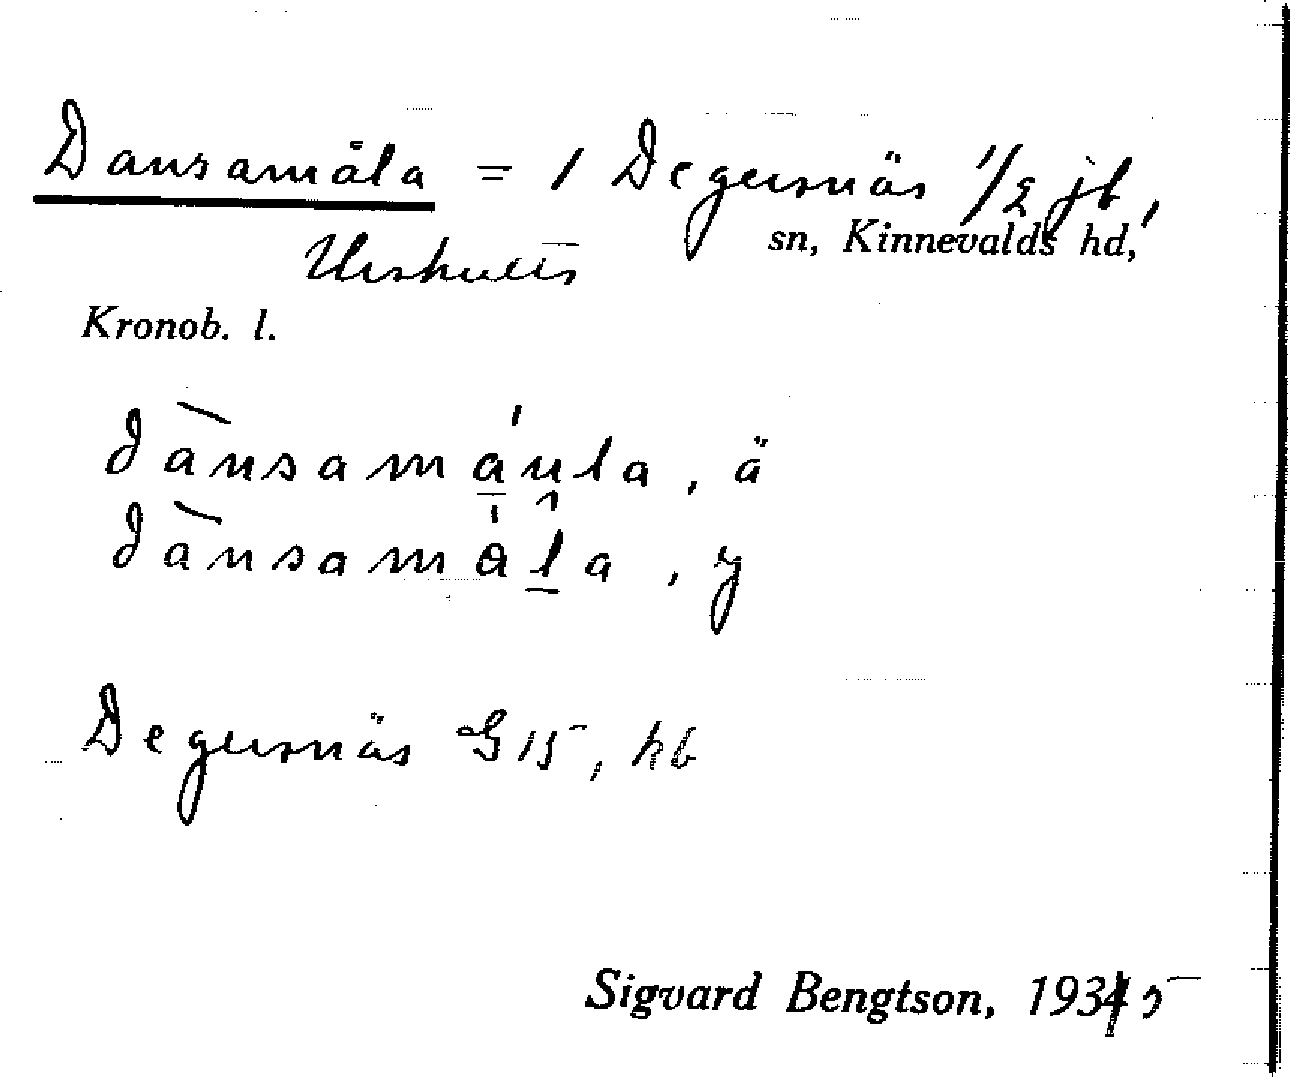 Dansamåla = 1 Degersnäs 1/2 jb,
Urshults sn, Kinnevalds hd,
Kronob. l.
dànsamáula, ä
dànsamåla, y
Degersnäs G 15, kb
Sigvard Bengtson, 1935